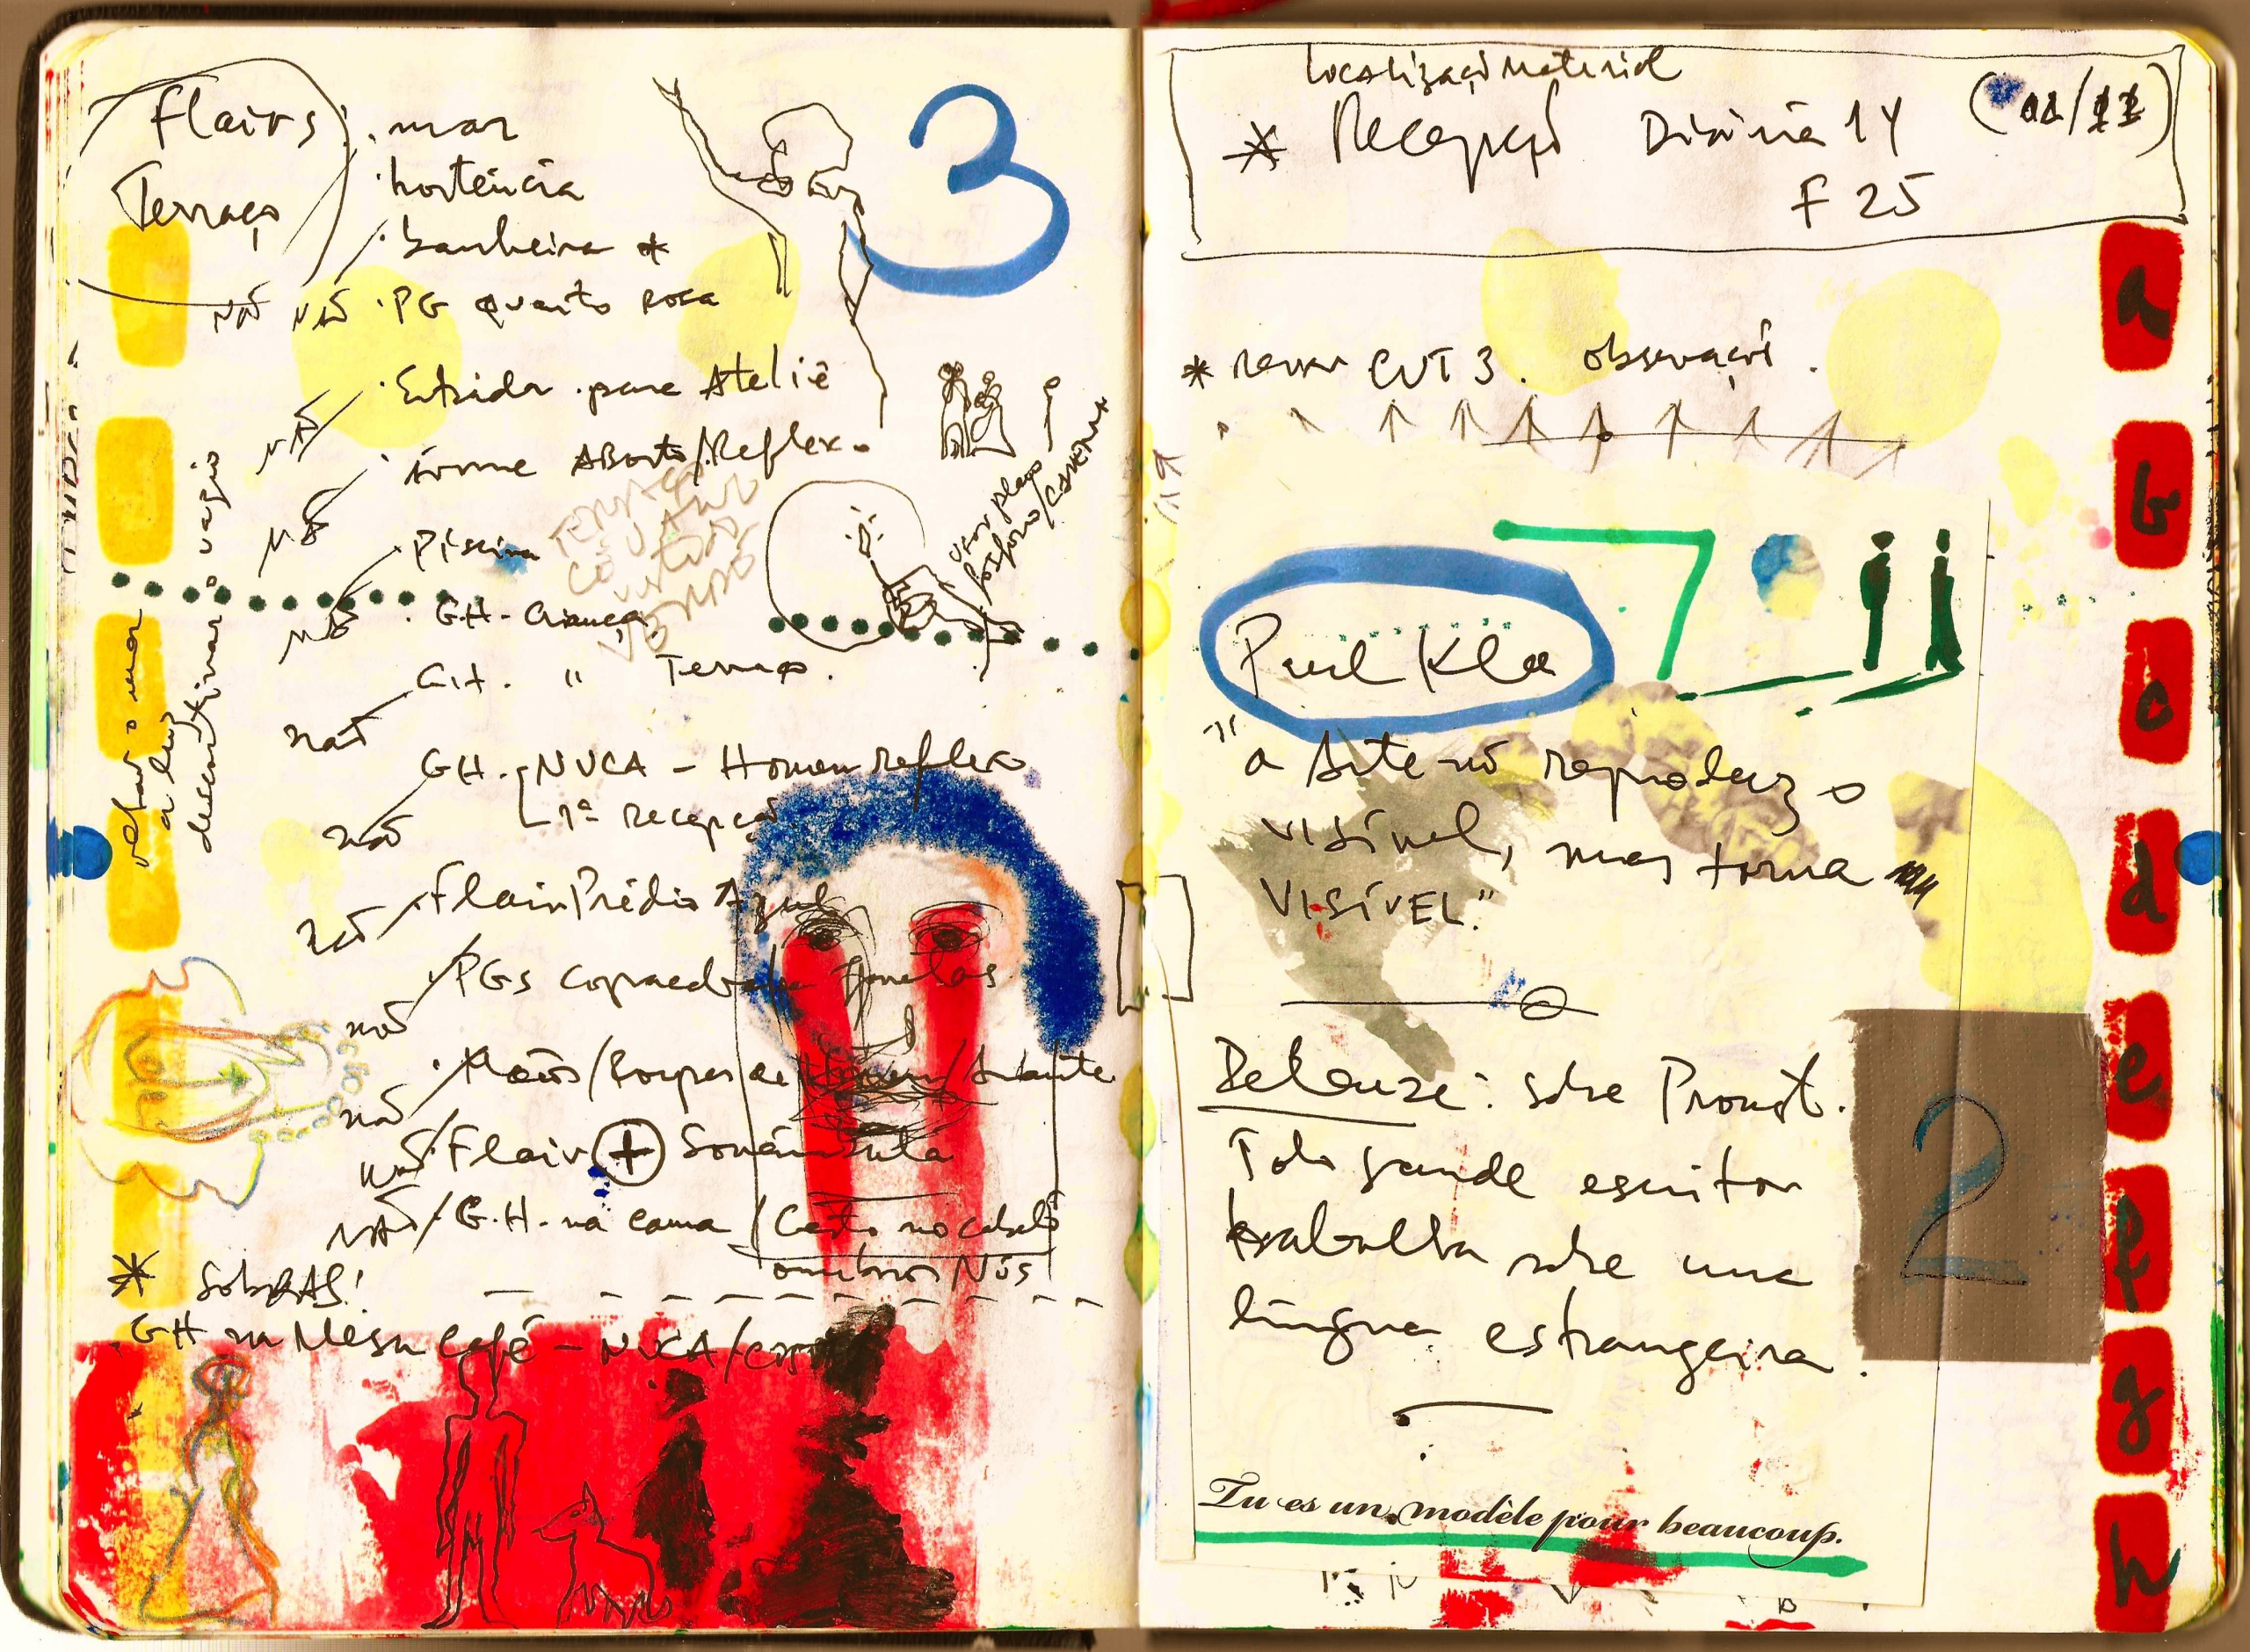 Flairs
Terraço
3
. mar
. hortência
. banheira *
não não . PG quarto rosa
não . Entrada para Ateliê
não . Aborto/Reflexo
não . Piscina
não . GH - Criança
não G.H. " Terraço.
não GH. - NUCA - Homem reflexo
1ª recepção
não Flair Prédio Azul
não PGs janelas
não . Mãos/Corpos de Homem/Amante
não Flair + Sonâmbula
não . G.H. na cama / Casto no cabelo
ombros Nús
* SOBRAS!
. GH na Mesa Café - NUCA/
o vazio
descortinar
a luz
usar plano
fósforo/CAVERNA
Localização Material
* Recepção Diária 14 (11/11)
F 25
* rever CUT 3. observação.
7
Paul Klee
"a Arte nõ reproduz o
visível, mas torna
VISÍVEL."
Deleuze: sobre Proust.
Todo grande escritor
trabalha sobre uma
língua estrangeira.
2
Tu es un modèle pour beaucoup.
a
b
c
d
e
f
g
h